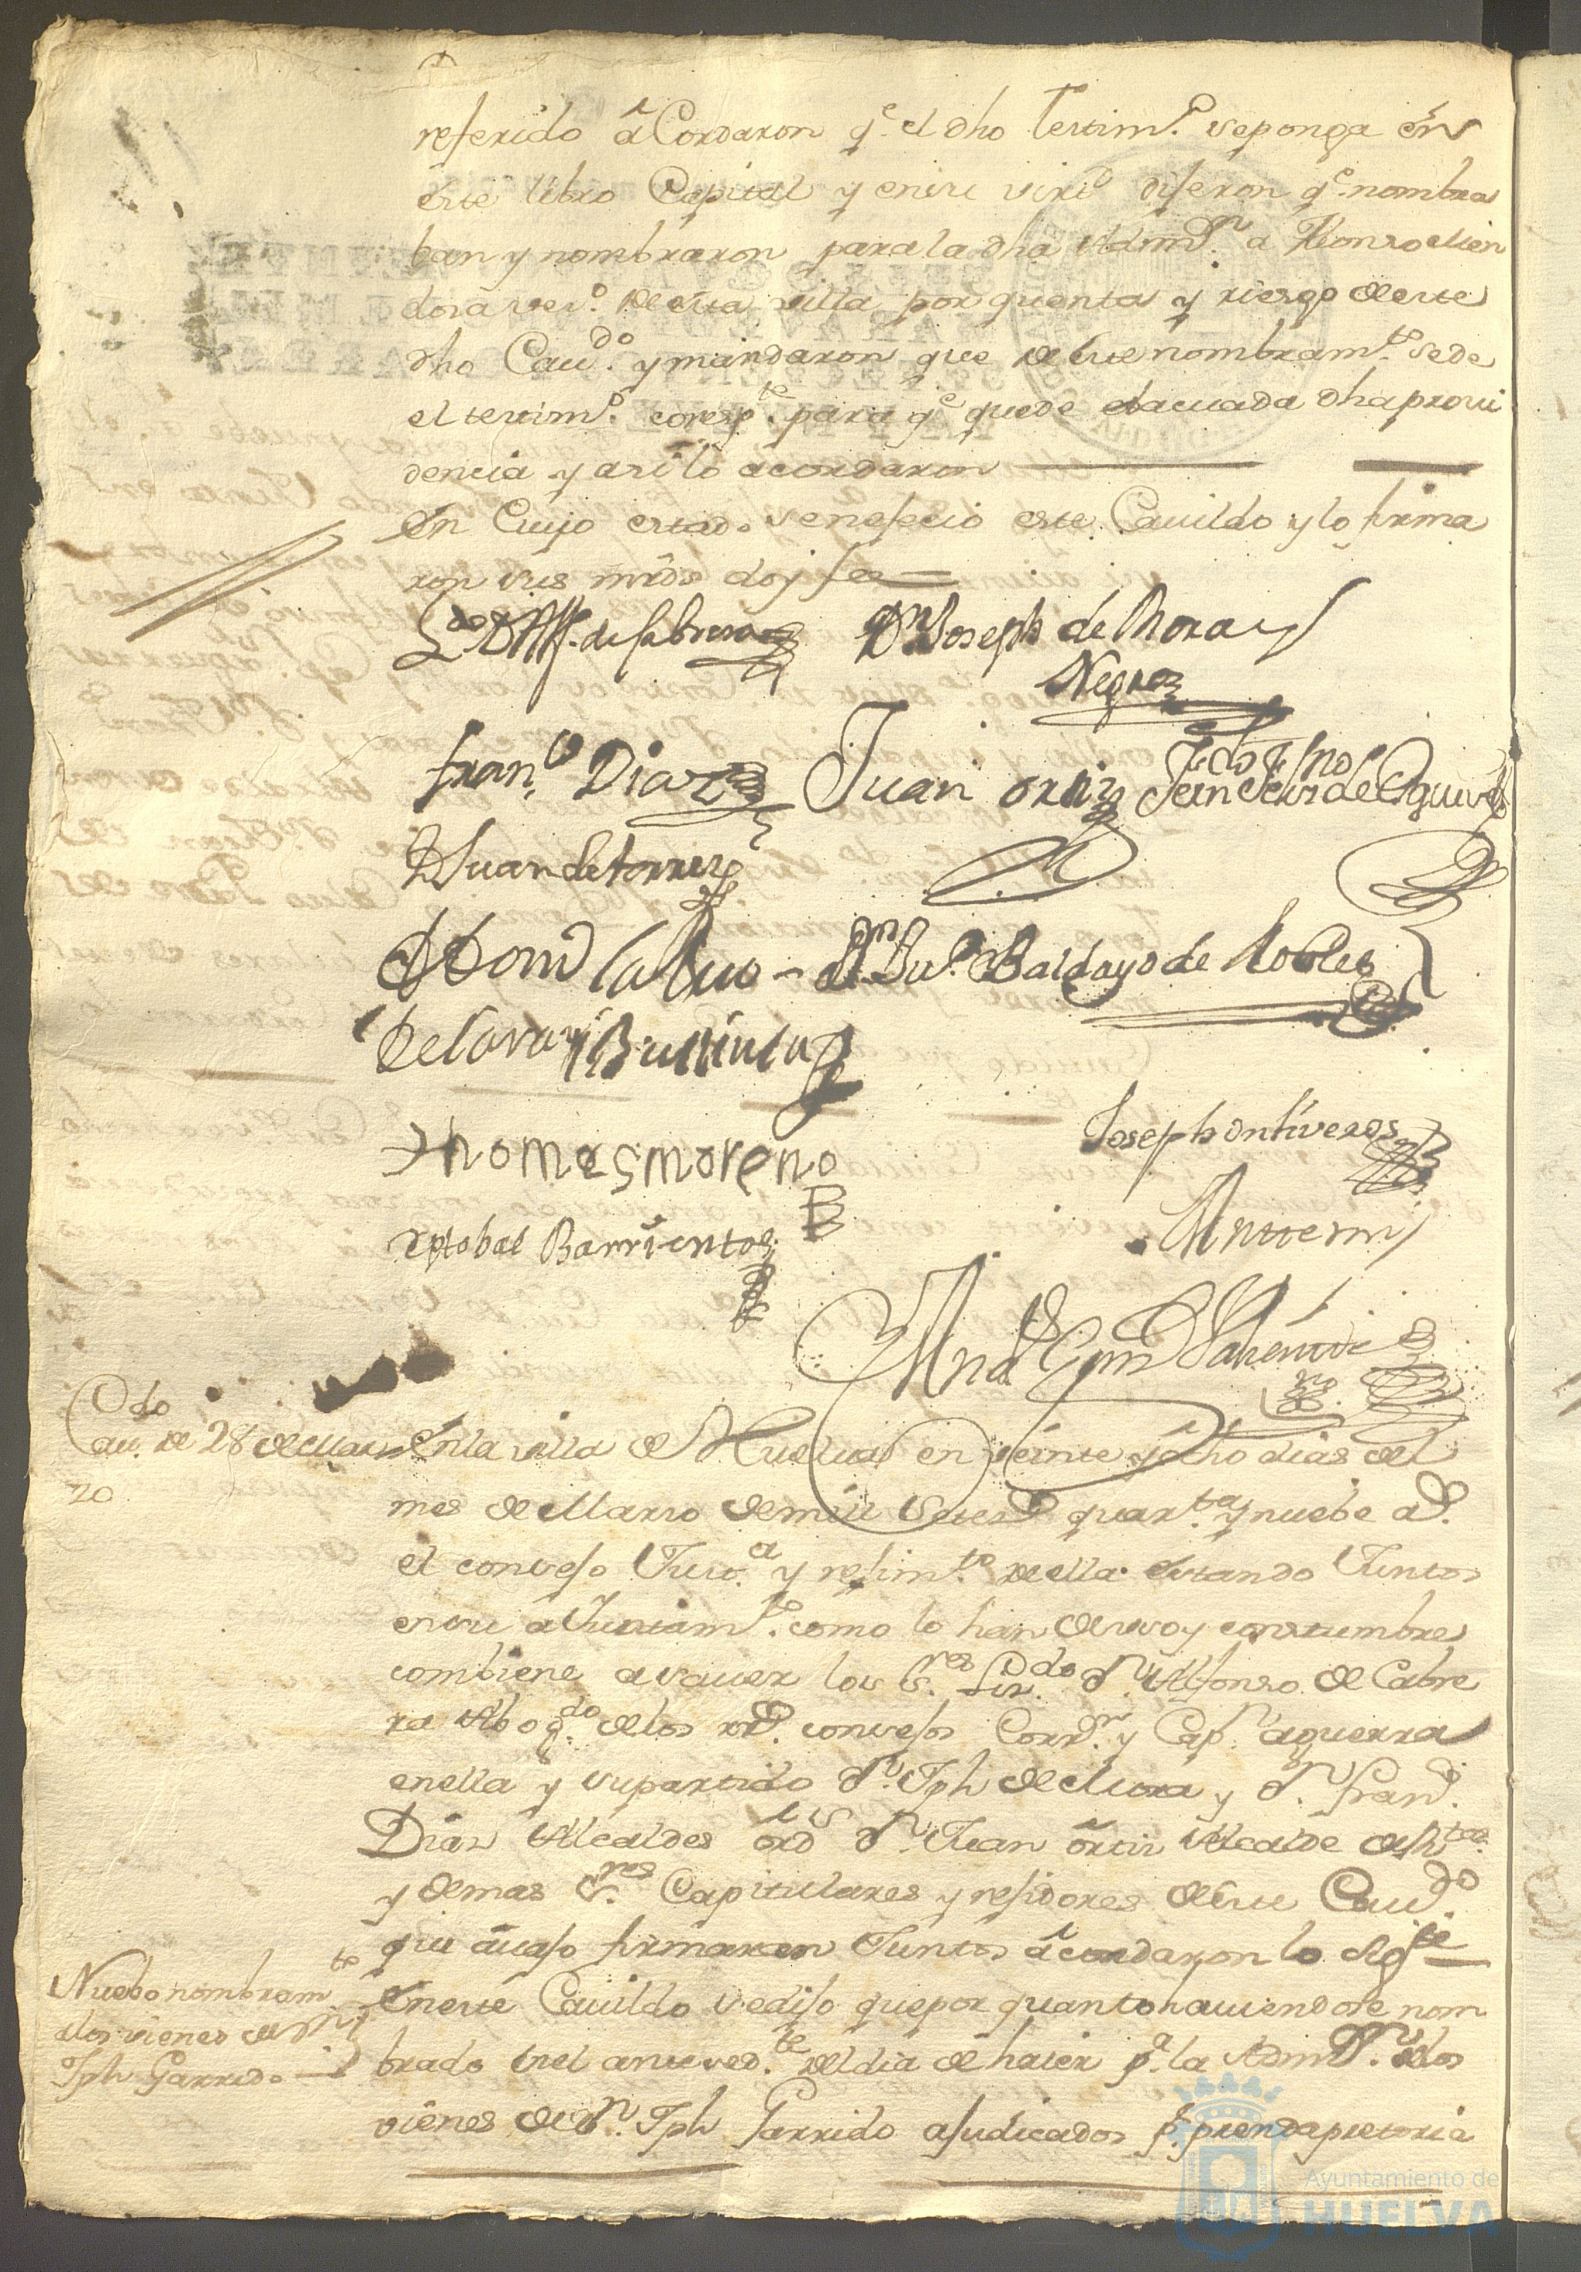 referido aCordaron q.e el dho testim.o se ponga en
este libro Capital y en su virt.d dijeron q.e nombra
ban y nombraron para la dha Adm.on a Alonso Men
dosa vez.o de esta villa por quenta y riesgo de este
dho Cau.do y mandaron que de este nombram.to se de
el testim.o corresp.te para q.e quede ebacuada dha provi
dencia y asi lo acordaron
En Cuyo estado se nesecio este Cauildo y lo firma
ron sus mrds doy fee
L.do D. Alf. de Cabrera D.n Joseph de Mora y
Negro
fran.co Diaz Juan ortiz
D Juan de torres
D.n Ju.o Baldayo de Robles
Thomas moreno Joseph ontiveros
xptobal Barrientos Antte mi
Cau.do de 28 de Mar
zo
En la villa de Huelva en veinte y ocho dias del
mes de Marzo de mill setez.s quar.ta y nuebe a.s
el consejo Just.a y rejim.to de ella estando Juntos
en su aJuntam.to como lo han de uso y costumbre
combiene a saver los S.res Liz.do d.n Alfonso de Cabre
ra Abog.do de los r.s consejos Corr.or y Cap.n a guerra
en ella y su partido d.n Jph de Mora y d.n fran.co
Diaz Alcaldes ord.s d.n Juan ortiz Alcalde
y demas S.res Capitulares y rejidores de este Cau.do
que avajo firmaren Juntos acordaron lo sig.te
Nuebo nombram.to
a los vienes de d.n
Jph Garrido
En este Cauildo se dijo que por quanto haviendose nom
brado en el antesed.te del dia de haier p.a la Adm.on de los
vienes de d.n Jph Garrido ajudicados p.r prenda pretoria
Ayuntamiento de
HUELVA